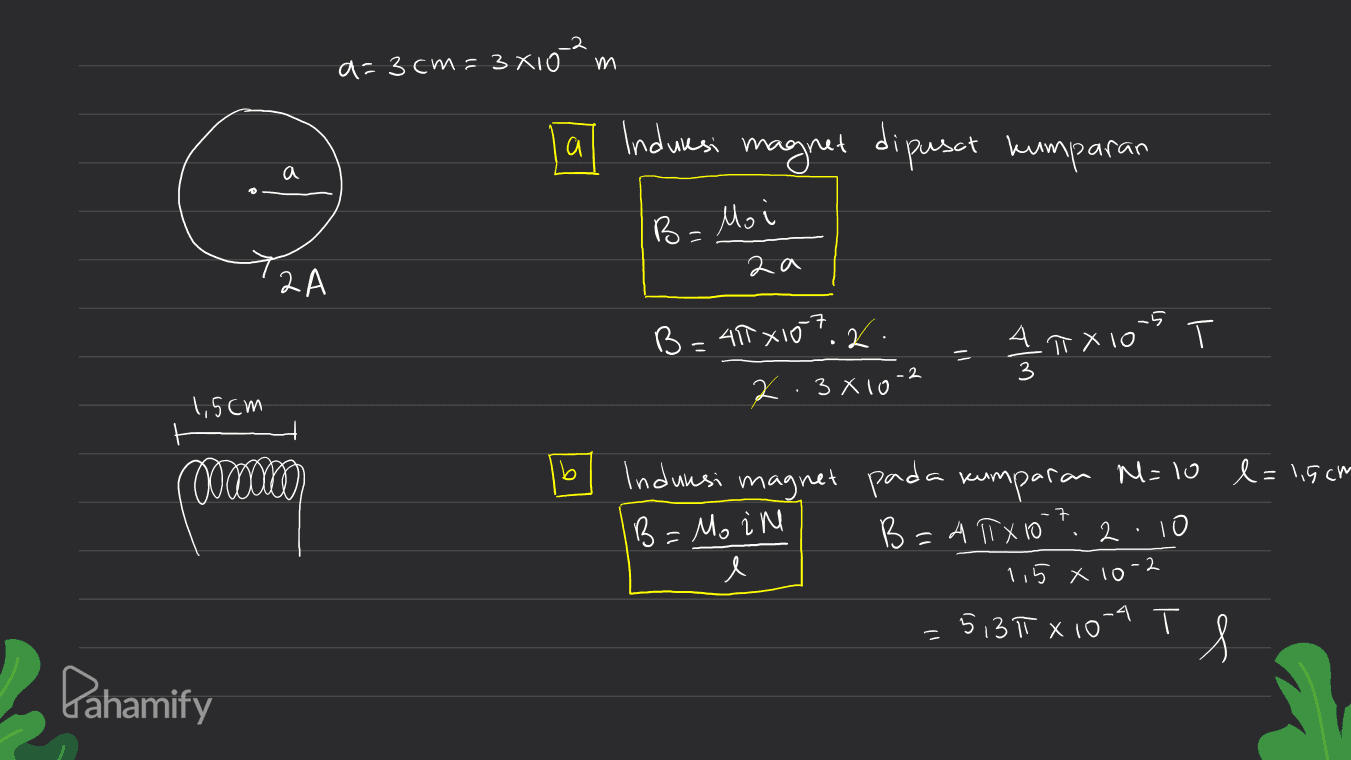 a = 3 cm = 3 x 10⁻² m
a
2A
a Induksi magnet dipusat kumparan
B = μ₀ i / 2 a
B = 4π x 10⁻⁷ . 2 . / 2 . 3 x 10⁻² = 4/3 π x 10⁻⁵ T
1,5 cm
b Induksi magnet pada kumparan N = 10 l = 1,5 cm
B = μ₀ i N / l
B = 4π x 10⁻⁷ . 2 . 10 / 1,5 x 10⁻²
= 5,3π x 10⁻⁴ T
Pahamify